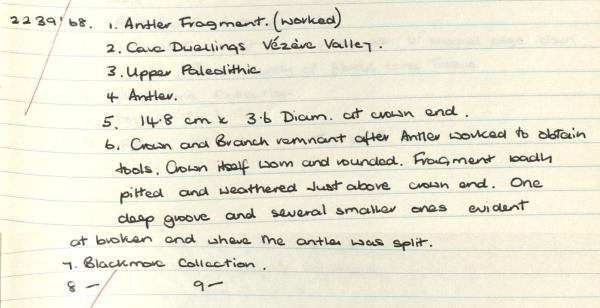 2239'68. 1. Antler Fragment. (worked)
2. Cave Dwellings Vézère Valley.
3. Upper Paleolithic
4 Antler.
5. 14.8 cm x 3.6 Diam. at crown end.
6. Crown and Branch remnant after Antler worked to obtain
tools. Crown itself worn and rounded. Fragment badly
pitted and weathered Just above crown end. One
deep groove and several smaller ones evident
at broken end where the antler was split.
7. Blackmore Collection.
8 - 9 -